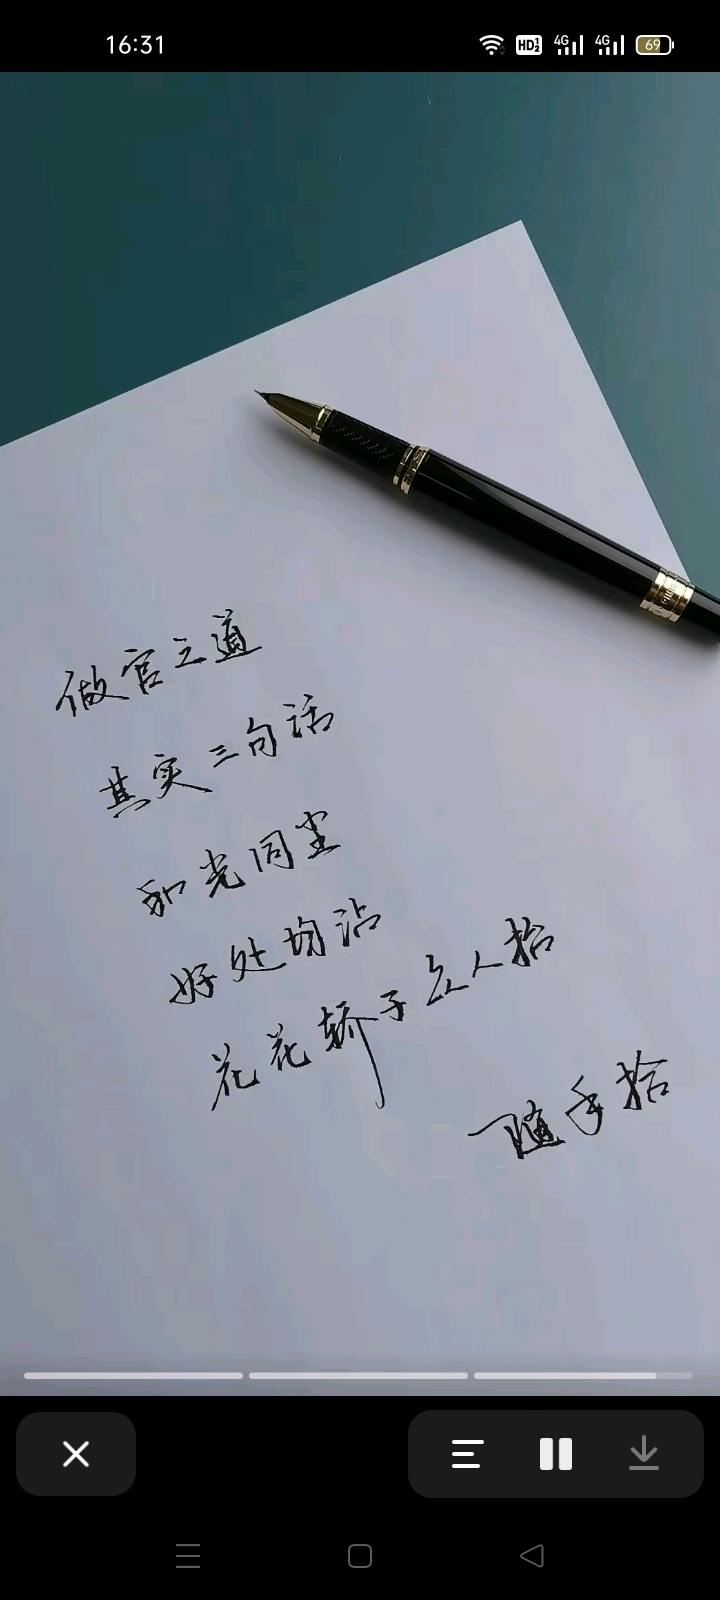 16:31
HD 4G 4G 69
做官之道
其实三句话
和光同尘
好处均沾
花花轿子众人抬
随手拾